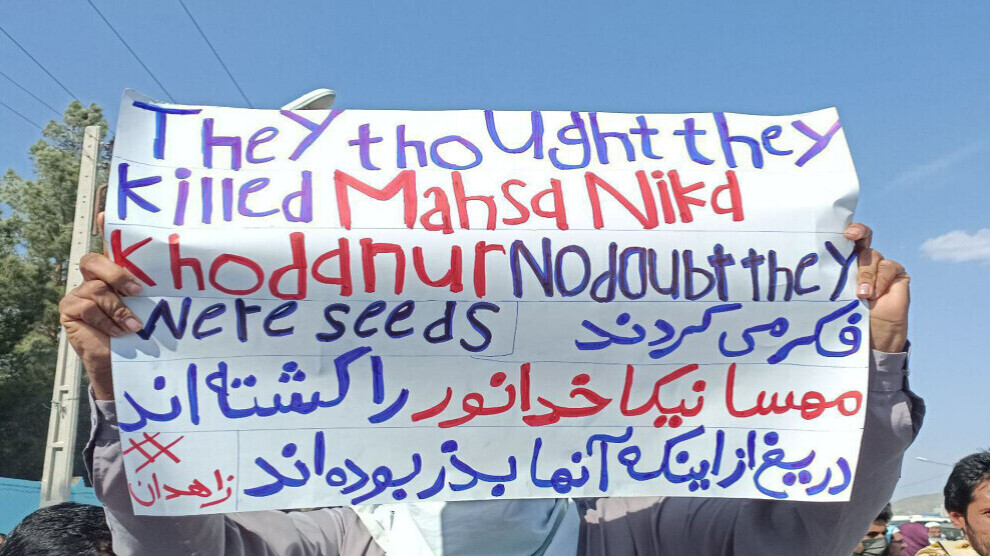 They thought they
killed Mahsa Nika
Khodanur No doubt they
were seeds
فکر می کردند
مهسا نیکا خدانور را کشته اند
دریغ از اینکه آنها بذر بوده اند
زاهدان